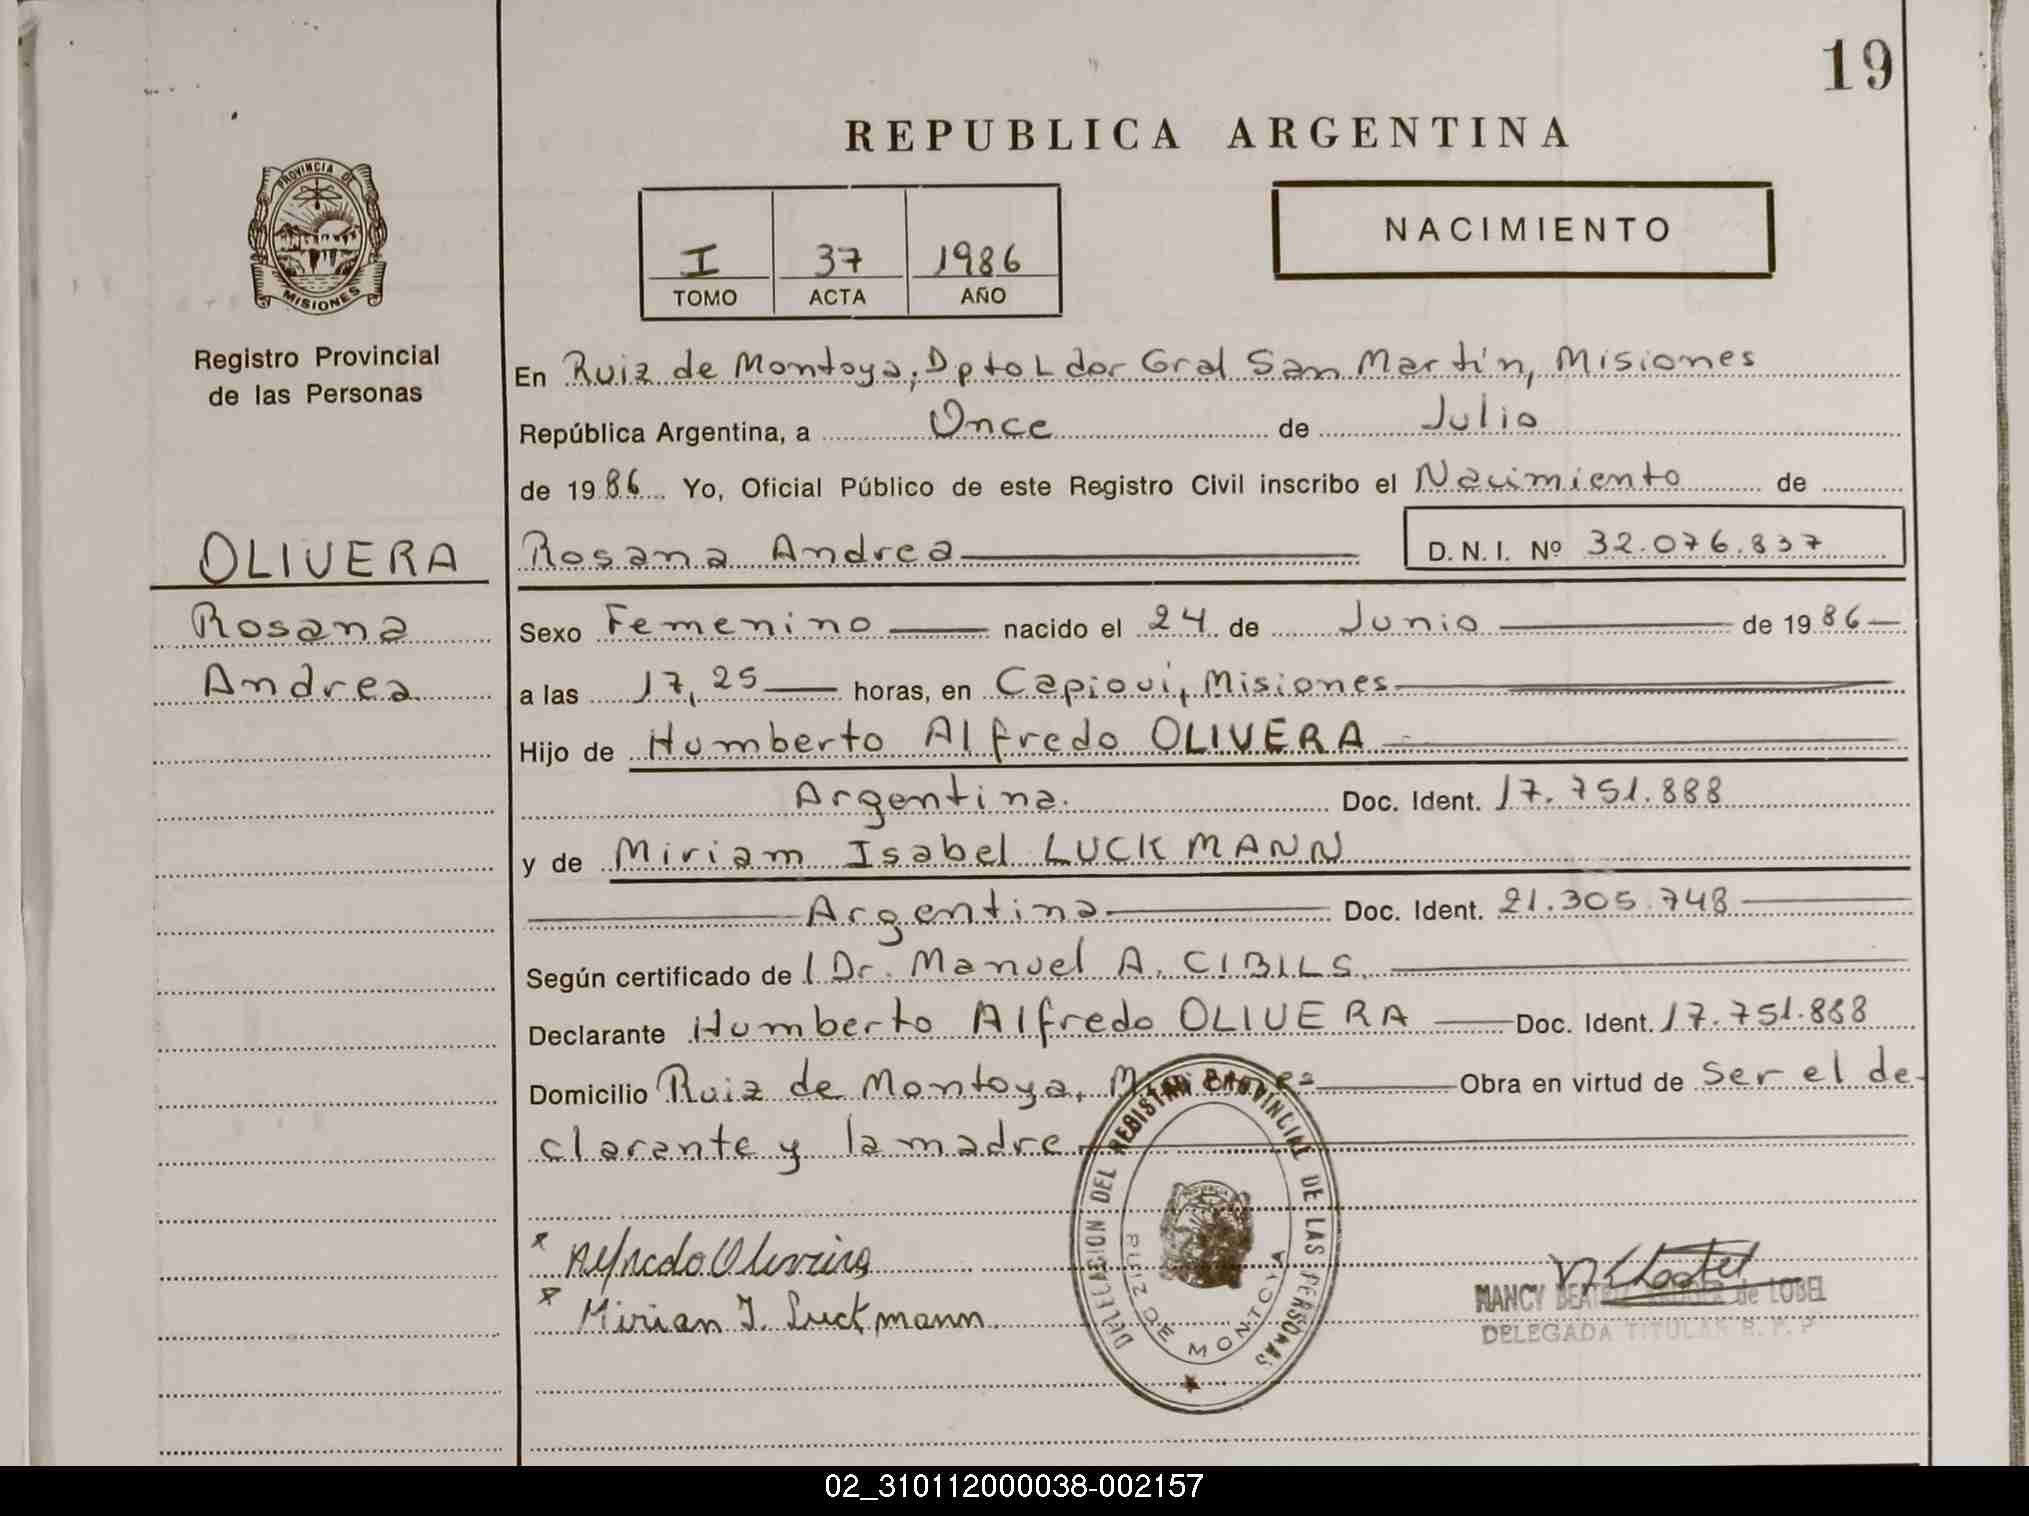 19
REPUBLICA ARGENTINA
PROVINCIA DE
MISIONES
Registro Provincial
de las Personas
I 37 1986
TOMO ACTA AÑO
NACIMIENTO
En Ruiz de Montoya, Dpto Ldor Gral San Martín, Misiones
República Argentina, a Once de Julio
de 1986 Yo, Oficial Público de este Registro Civil inscribo el Nacimiento de
OLIVERA
Rosana Andrea D.N.I. Nº 32.076.837
Rosana
Andrea
Sexo Femenino nacido el 24 de Junio de 1986
a las 17,25 horas, en Capioví, Misiones
Hijo de Humberto Alfredo OLIVERA
Argentina. Doc. Ident. 17.751.888
y de Miriam Isabel LUCKMANN
Argentina Doc. Ident. 21.305.748
Según certificado de l Dr. Manuel A. CIBILS.
Declarante Humberto Alfredo OLIVERA Doc. Ident. 17.751.888
Domicilio Ruiz de Montoya, Misiones Obra en virtud de Ser el de-
clarante y la madre
DELEGACION DEL REGISTRO PROVINCIAL DE LAS PERSONAS
RUIZ DE MONTOYA
x Alfredo Oliveira
x Mirian I. Luckmann
NANCY BEATRIZ de LOBEL
DELEGADA TITULAR R. P. P
02_310112000038-002157